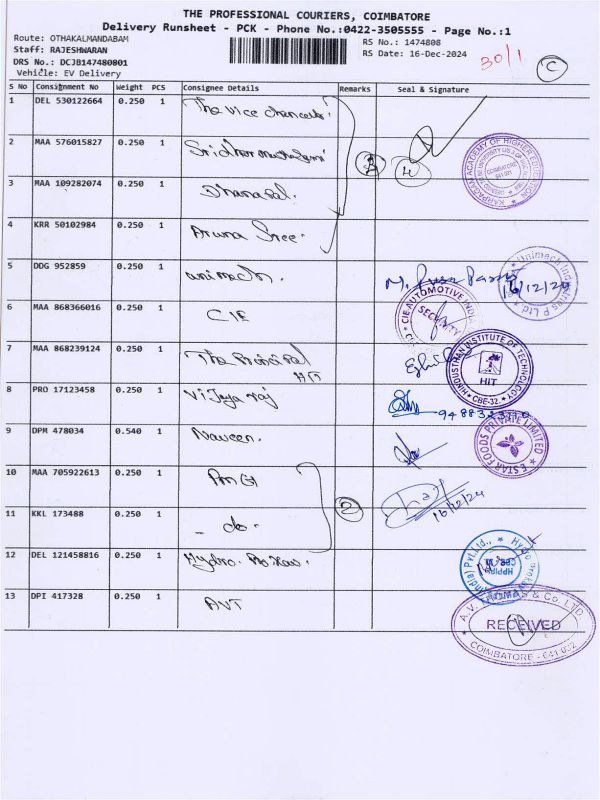 THE PROFESSIONAL COURIERS, COIMBATORE
Delivery Runsheet - PCK - Phone No.:0422-3505555 - Page No.:1
Route: OTHAKALMANDABAM
RS No.: 1474808
Staff: RAJESHWARAN
RS Date: 16-Dec-2024
30/1
DRS No.: DCJB147480801
C
Vehicle: EV Delivery
S No Consignment No Weight PCS Consignee Details Remarks Seal & Signature
1 DEL 530122664 0.250 1 The vice chancellor
2 MAA 576015827 0.250 1 Sridhar
3 MAA 109282074 0.250 1 Dhanasal.
4
KARPAGAM ACADEMY OF HIGHER EDUCATION
COIMBATORE
641 021
4 KRR 50102984 0.250 1 Aruna Sree.
5 DDG 952859 0.250 1 unimech.
16/12/24
Unimech Industries P Ltd
6 MAA 868366016 0.250 1 CIE
CIE AUTOMOTIVE INDIA
SECURITY
7 MAA 868239124 0.250 1 The Principal
HIT
HINDUSTHAN INSTITUTE OF TECHNOLOGY
HIT
CBE-32
8 PRO 17123458 0.250 1 Vijaya raj
9 DPM 478034 0.540 1 Naveen.
E STAR FOODS PRIVATE LIMITED
10 MAA 705922613 0.250 1
2
16/12/24
11 KKL 173488 0.250 1 - do -
12 DEL 121458816 0.250 1 Hydro
(India) Pvt. Ltd.,
13 DPI 417328 0.250 1 AVT
A.V. THOMAS & Co. LTD.
RECEIVED
COIMBATORE - 641 032